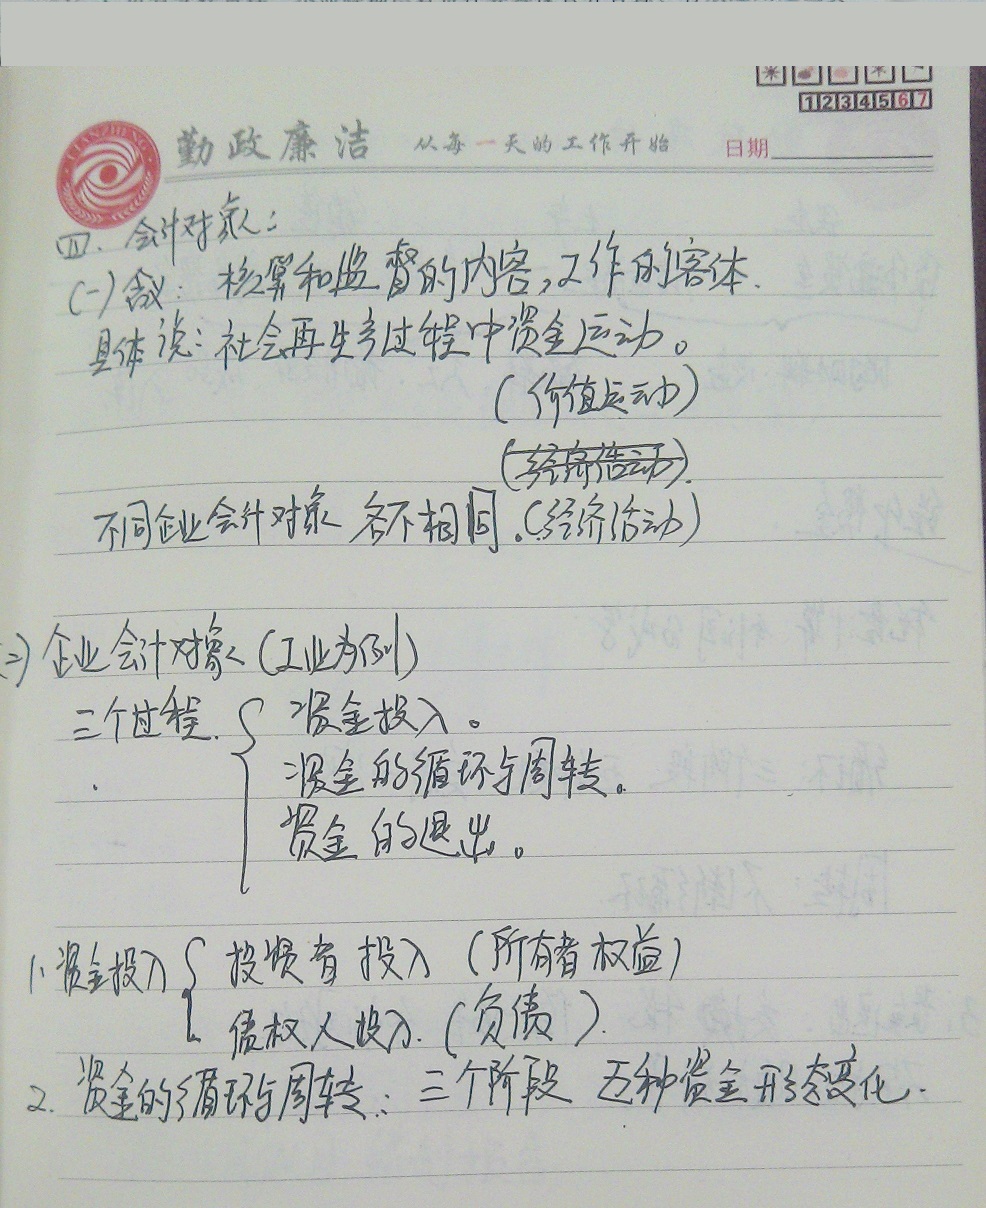 1234567
LIANZHENG
勤政廉洁 从每一天的工作开始 日期
四. 会计对象:
(一)含义: 核算和监督的内容,工作的客体.
具体说: 社会再生产过程中资金运动。
(价值运动)
(经济活动).
不同企业会计对象 各不相同.(经济活动)
(二)企业会计对象(工业为例)
三个过程. { 资金投入。
资金的循环与周转。
资金的退出。
1. 资金投入 { 投资者投入 (所有者权益)
债权人投入. (负债).
2. 资金的循环与周转: 三个阶段 五种资金形态变化.